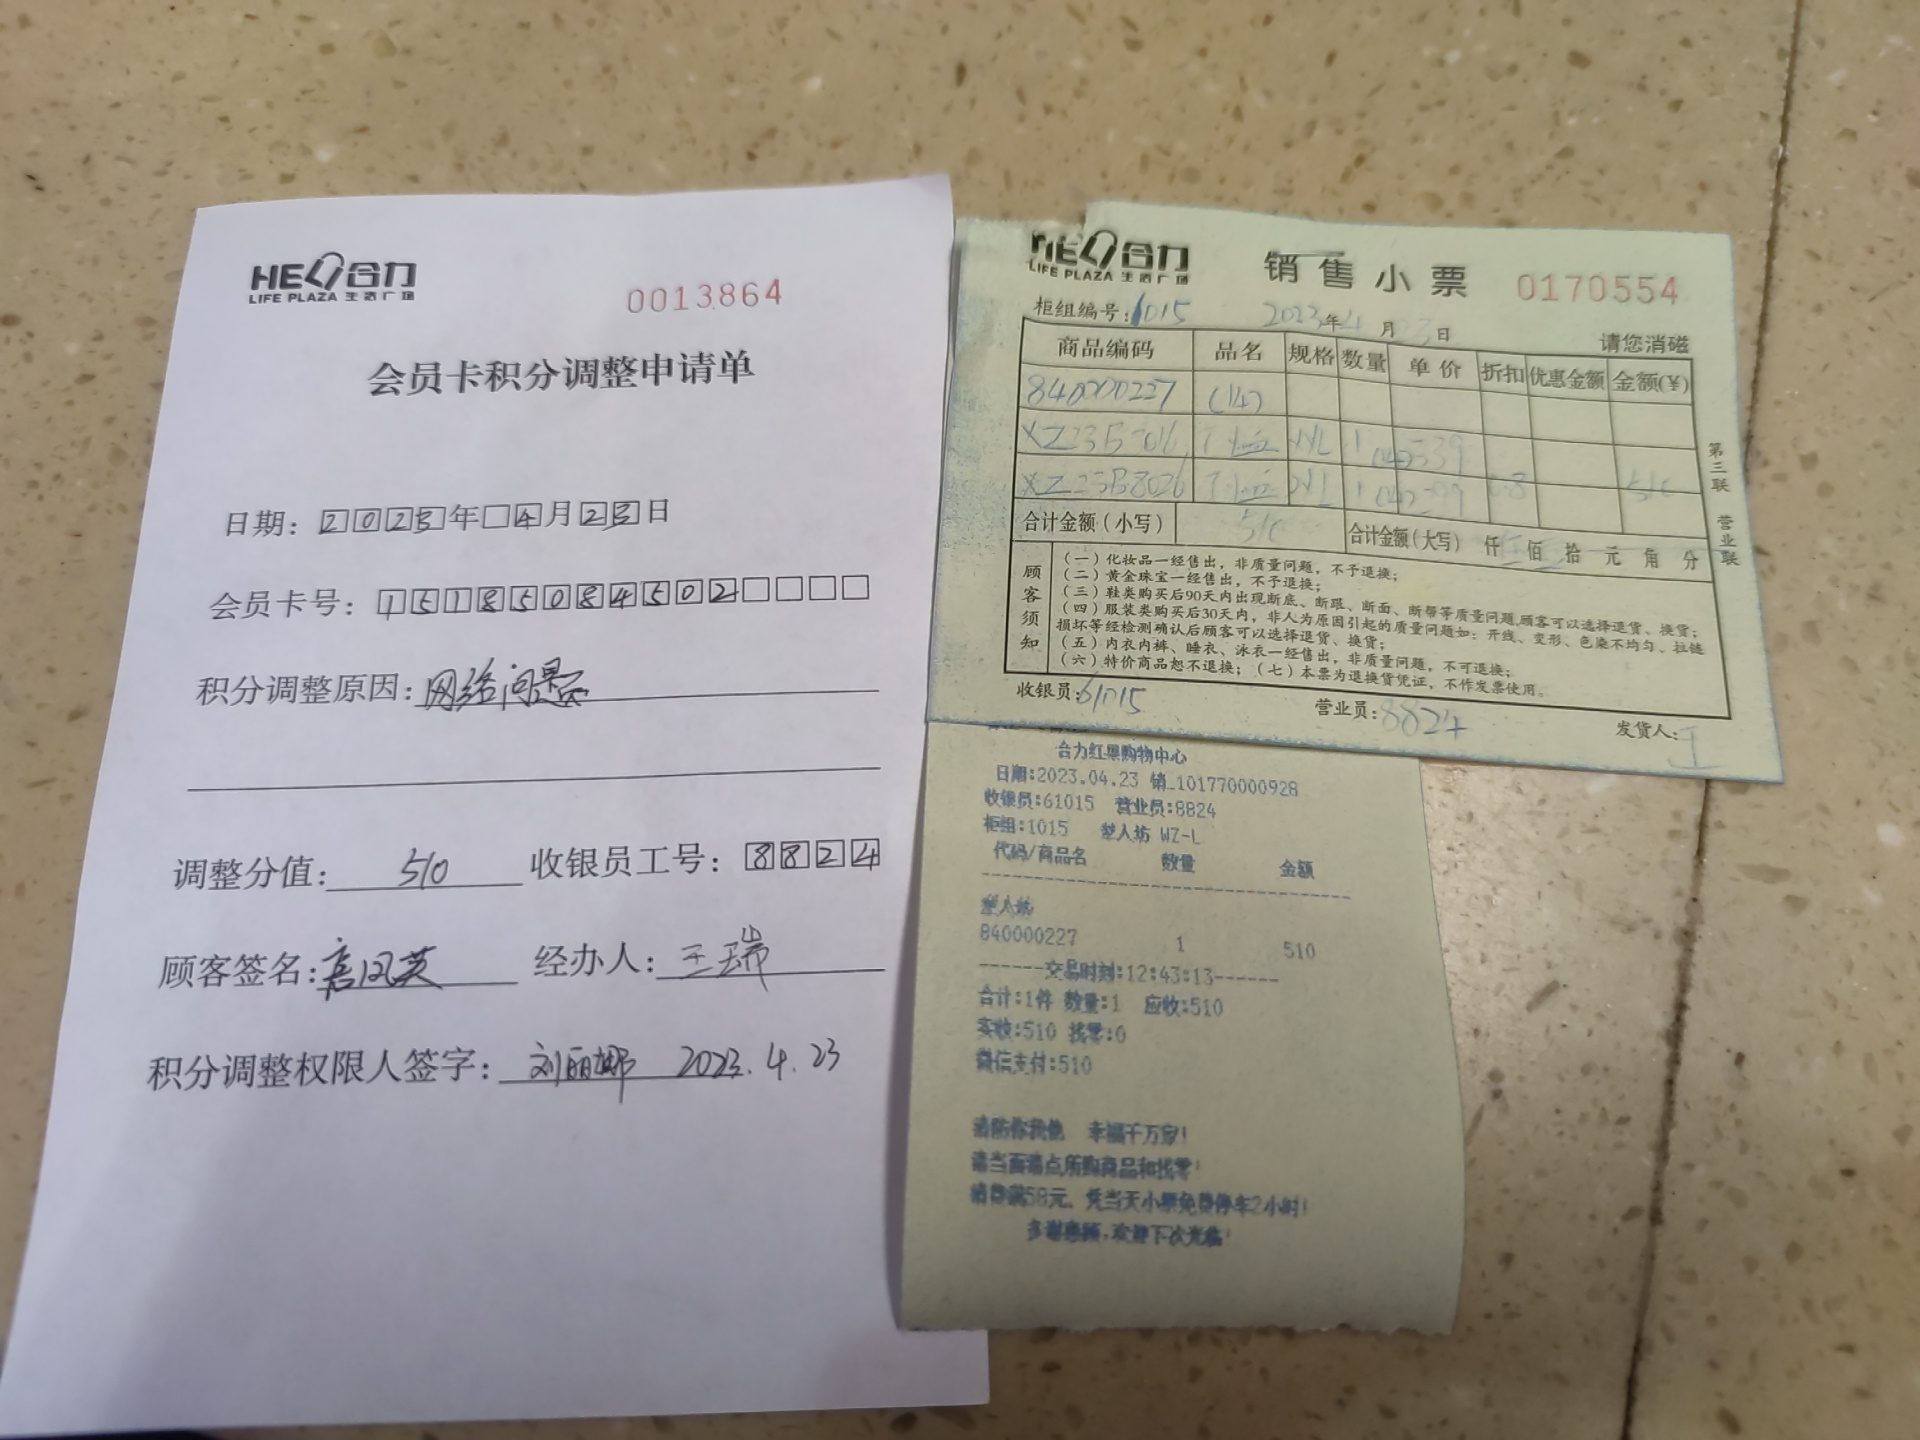 HE合力
LIFE PLAZA 生活广场
0013864
会员卡积分调整申请单
日期: 2023年 4月23日
会员卡号: 15185084502
积分调整原因: 网络问题
调整分值: 510 收银员工号: 8824
顾客签名: 凤英 经办人: 王瑞
积分调整权限人签字: 刘丽娜 2023.4.23
HE合力
LIFE PLAZA 生活广场
销售小票 0170554
柜组编号: 1015 2023年4月23日 请您消磁
商品编码 品名 规格 数量 单价 折扣 优惠金额 金额(¥)
840000227 (14)
1 539
XZ23B8026 1 299
合计金额（小写） 510 合计金额（大写） 仟 佰 拾 元 角 分
顾客须知
（一）化妆品一经售出，非质量问题，不予退换；
（二）黄金珠宝一经售出，不予退换；
（三）鞋类购买后90天内出现断底、断跟、断面、断帮等质量问题,顾客可以选择退货、换货；
（四）服装类购买后30天内，非人为原因引起的质量问题如：开线、变形、色染不均匀、拉链
损坏等经检测确认后顾客可以选择退货、换货；
（五）内衣内裤、睡衣、泳衣一经售出，非质量问题，不可退换；
（六）特价商品恕不退换；（七）本票为退换货凭证，不作发票使用。
第三联 营业联
收银员: 61015 营业员: 8824 发货人: 王
合力红果购物中心
日期:2023.04.23 销 101770000928
收银员:61015 营业员:8824
柜组:1015 人坊 WZ-L
代码/商品名 数量 金额
人坊
840000227 1 510
------交易时刻:12:43:13------
合计:1件 数量:1 应收:510
实收:510 找零:0
微信支付:510
消防你我他 幸福千万家!
请当面清点所购商品和找零!
消费满58元，凭当天小票免费停车2小时!
多谢惠顾,欢迎下次光临!